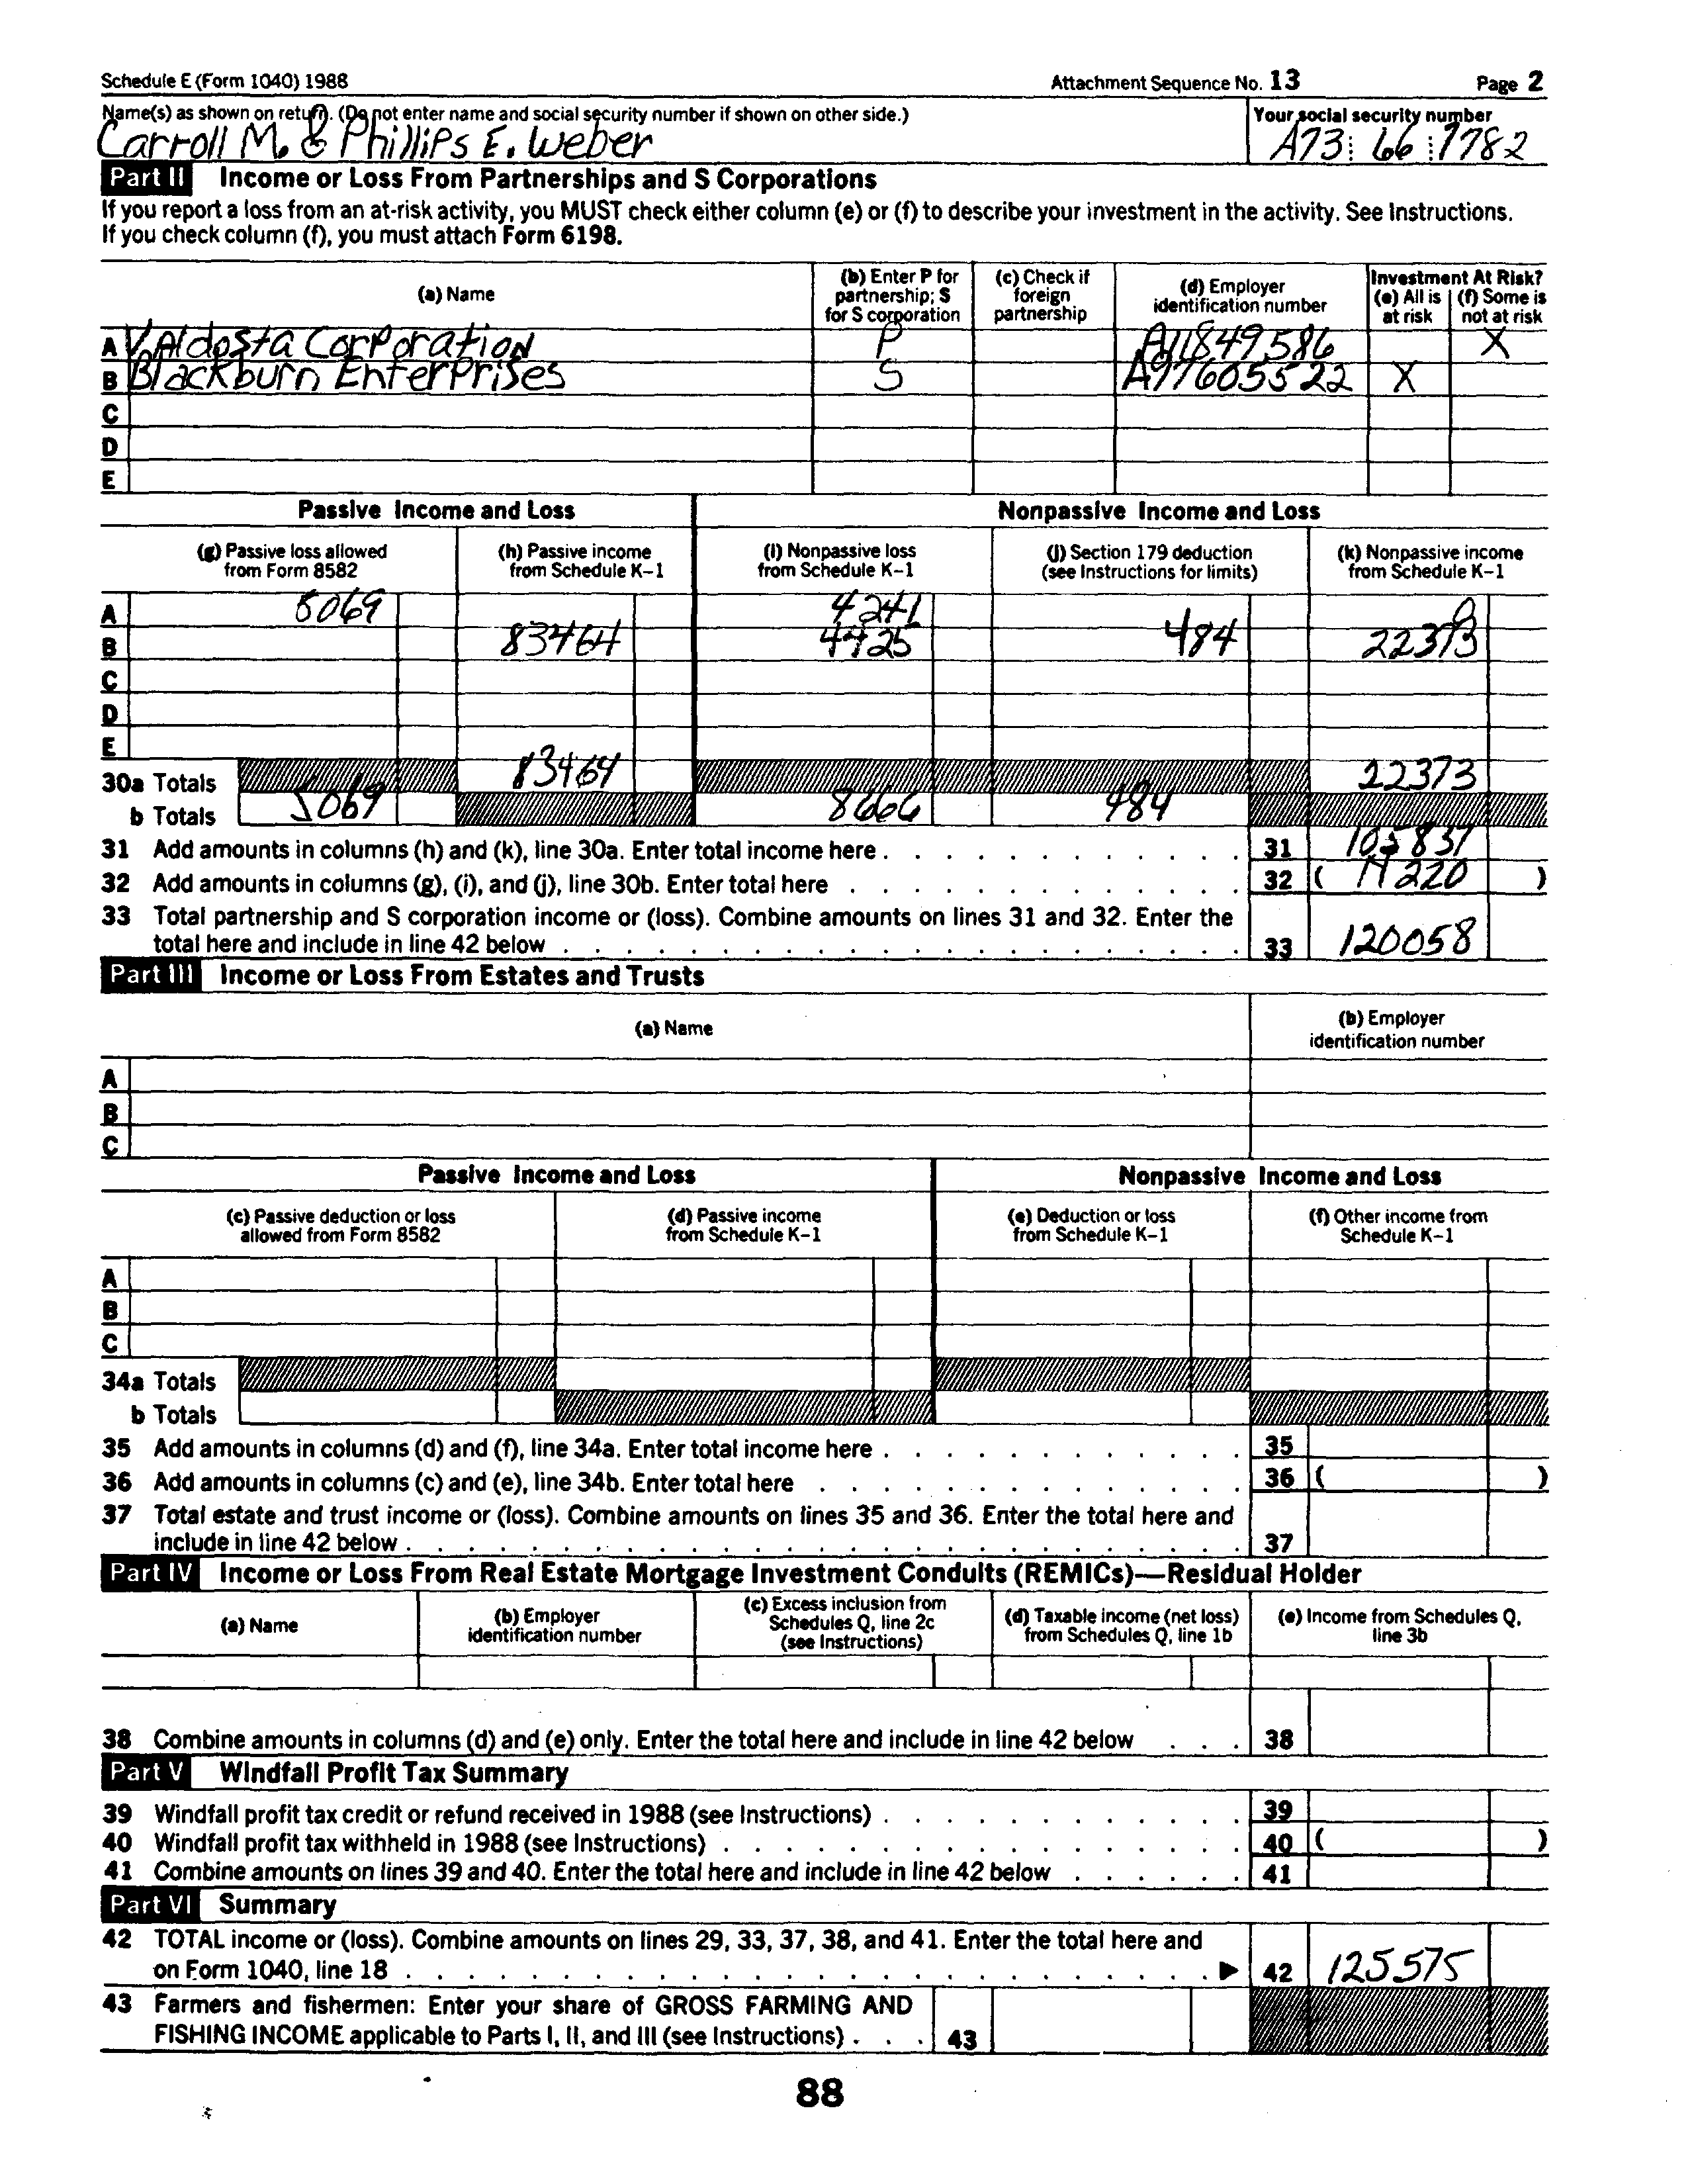 Schedule E (Form 1040) 1988 Attachment Sequence No. 13 Page 2
Name(s) as shown on return. (Do not enter name and social security number if shown on other side.) Your social security number
Carroll M. & Phillips E. Weber A73 66 7782
Part II Income or Loss From Partnerships and S Corporations
If you report a loss from an at-risk activity, you MUST check either column (e) or (f) to describe your investment in the activity. See Instructions.
If you check column (f), you must attach Form 6198.
(a) Name (b) Enter P for partnership; S for S corporation (c) Check if foreign partnership (d) Employer identification number Investment At Risk? (e) All is at risk (f) Some is not at risk
A Valdosta Corporation P A11849586 X
B Blackburn Enterprises S A97605522 X
C
D
E
Passive Income and Loss Nonpassive Income and Loss
(g) Passive loss allowed from Form 8582 (h) Passive income from Schedule K-1 (i) Nonpassive loss from Schedule K-1 (j) Section 179 deduction (see Instructions for limits) (k) Nonpassive income from Schedule K-1
A 5069 4241 0
B 83464 4425 484 22373
C
D
E
30a Totals 83464 22373
b Totals 5069 8666 484
31 Add amounts in columns (h) and (k), line 30a. Enter total income here 31 105837
32 Add amounts in columns (g), (i), and (j), line 30b. Enter total here 32 ( 14220 )
33 Total partnership and S corporation income or (loss). Combine amounts on lines 31 and 32. Enter the
total here and include in line 42 below 33 120058
Part III Income or Loss From Estates and Trusts
(a) Name (b) Employer identification number
A
B
C
Passive Income and Loss Nonpassive Income and Loss
(c) Passive deduction or loss allowed from Form 8582 (d) Passive income from Schedule K-1 (e) Deduction or loss from Schedule K-1 (f) Other income from Schedule K-1
A
B
C
34a Totals
b Totals
35 Add amounts in columns (d) and (f), line 34a. Enter total income here 35
36 Add amounts in columns (c) and (e), line 34b. Enter total here 36 ( )
37 Total estate and trust income or (loss). Combine amounts on lines 35 and 36. Enter the total here and
include in line 42 below 37
Part IV Income or Loss From Real Estate Mortgage Investment Conduits (REMICs)—Residual Holder
(a) Name (b) Employer identification number (c) Excess inclusion from Schedules Q, line 2c (see Instructions) (d) Taxable income (net loss) from Schedules Q, line 1b (e) Income from Schedules Q, line 3b
38 Combine amounts in columns (d) and (e) only. Enter the total here and include in line 42 below 38
Part V Windfall Profit Tax Summary
39 Windfall profit tax credit or refund received in 1988 (see Instructions) 39
40 Windfall profit tax withheld in 1988 (see Instructions) 40 ( )
41 Combine amounts on lines 39 and 40. Enter the total here and include in line 42 below 41
Part VI Summary
42 TOTAL income or (loss). Combine amounts on lines 29, 33, 37, 38, and 41. Enter the total here and
on Form 1040, line 18 ▶ 42 125575
43 Farmers and fishermen: Enter your share of GROSS FARMING AND
FISHING INCOME applicable to Parts I, II, and III (see Instructions) 43
88